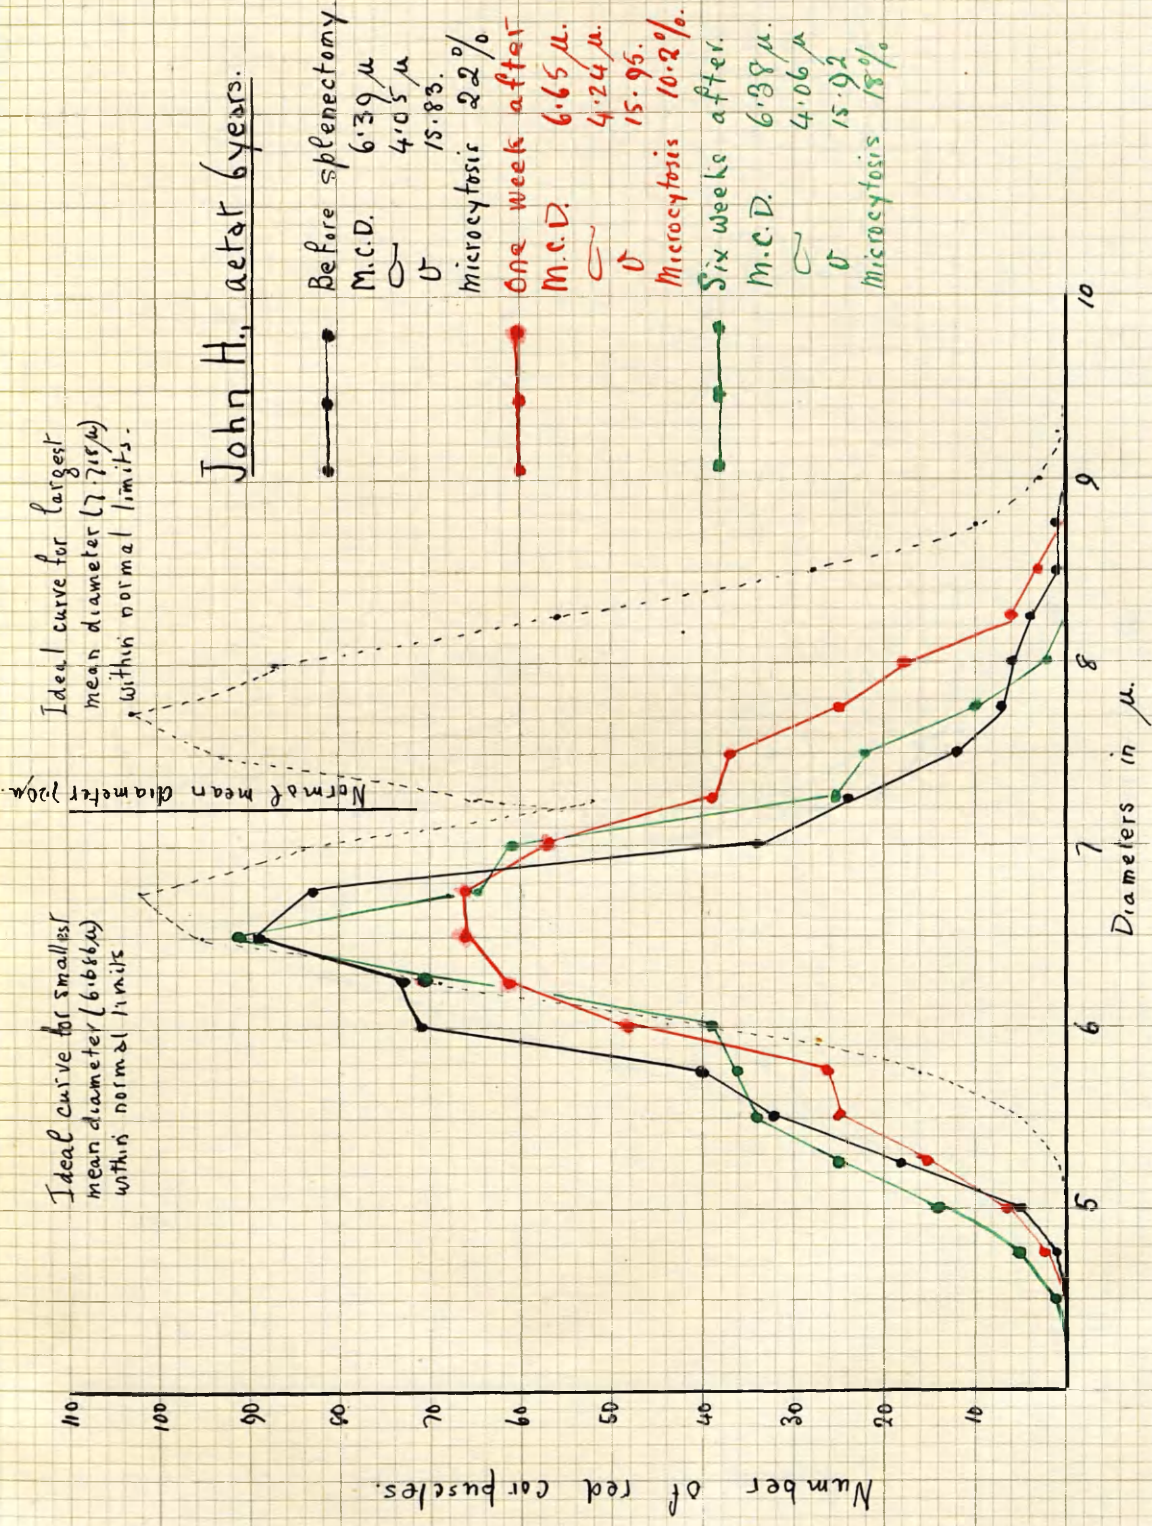 John H., aetat 6 years.
Before splenectomy
M.C.D. 6·39 μ
σ 4·05 μ
v 15·83.
Microcytosis 22%
One week after
M.C.D. 6·65 μ.
σ 4·24 μ.
v 15·95.
Microcytosis 10·2%.
Six weeks after.
M.C.D. 6·38 μ.
σ 4·06 μ
v 15·92
Microcytosis 18%
Ideal curve for smallest
mean diameter (6·686μ)
within normal limits
Normal mean diameter 7·20μ.
Ideal curve for largest
mean diameter (7·718μ)
within normal limits.
Number of red corpuscles.
110
100
90
80
70
60
50
40
30
20
10
5 6 7 8 9 10
Diameters in μ.